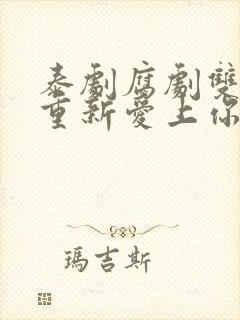 泰劇腐劇雙
重新愛上你
瑪吉斯